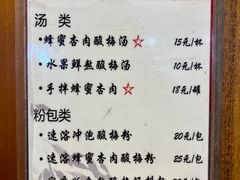 汤 类
·蜂蜜杏肉酸梅汤☆ 15元/杯
·水果鲜熬酸梅汤 10元/杯
·手拌蜂蜜杏肉☆ 18元/罐
粉包类
·速溶冲泡酸梅粉 20元/包
·速溶蜂蜜杏肉酸梅粉 25元/包